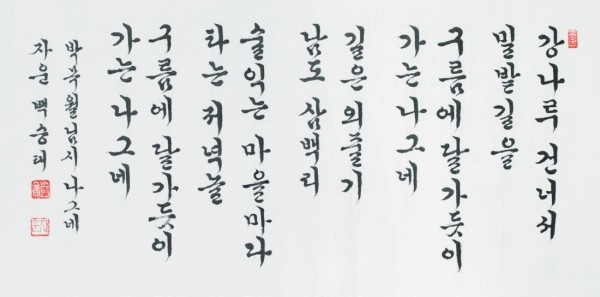 강나루 건너서
밀밭길을
구름에 달 가듯이
가는 나그네
길은 외줄기
남도 삼백리
술익는 마을마다
타는 저녁놀
구름에 달 가듯이
가는 나그네
박목월님시 나그네
자운 백승태